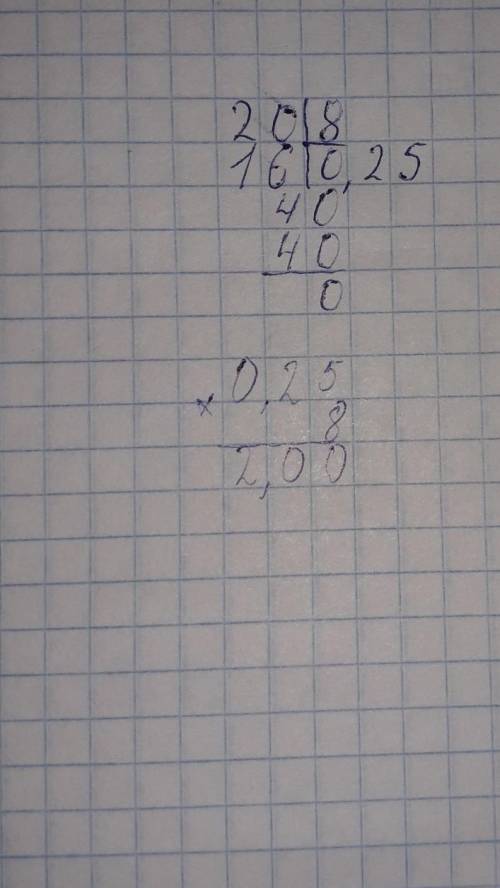 20|8
16|0,25
40
40
0
0,25
× 8
2,00